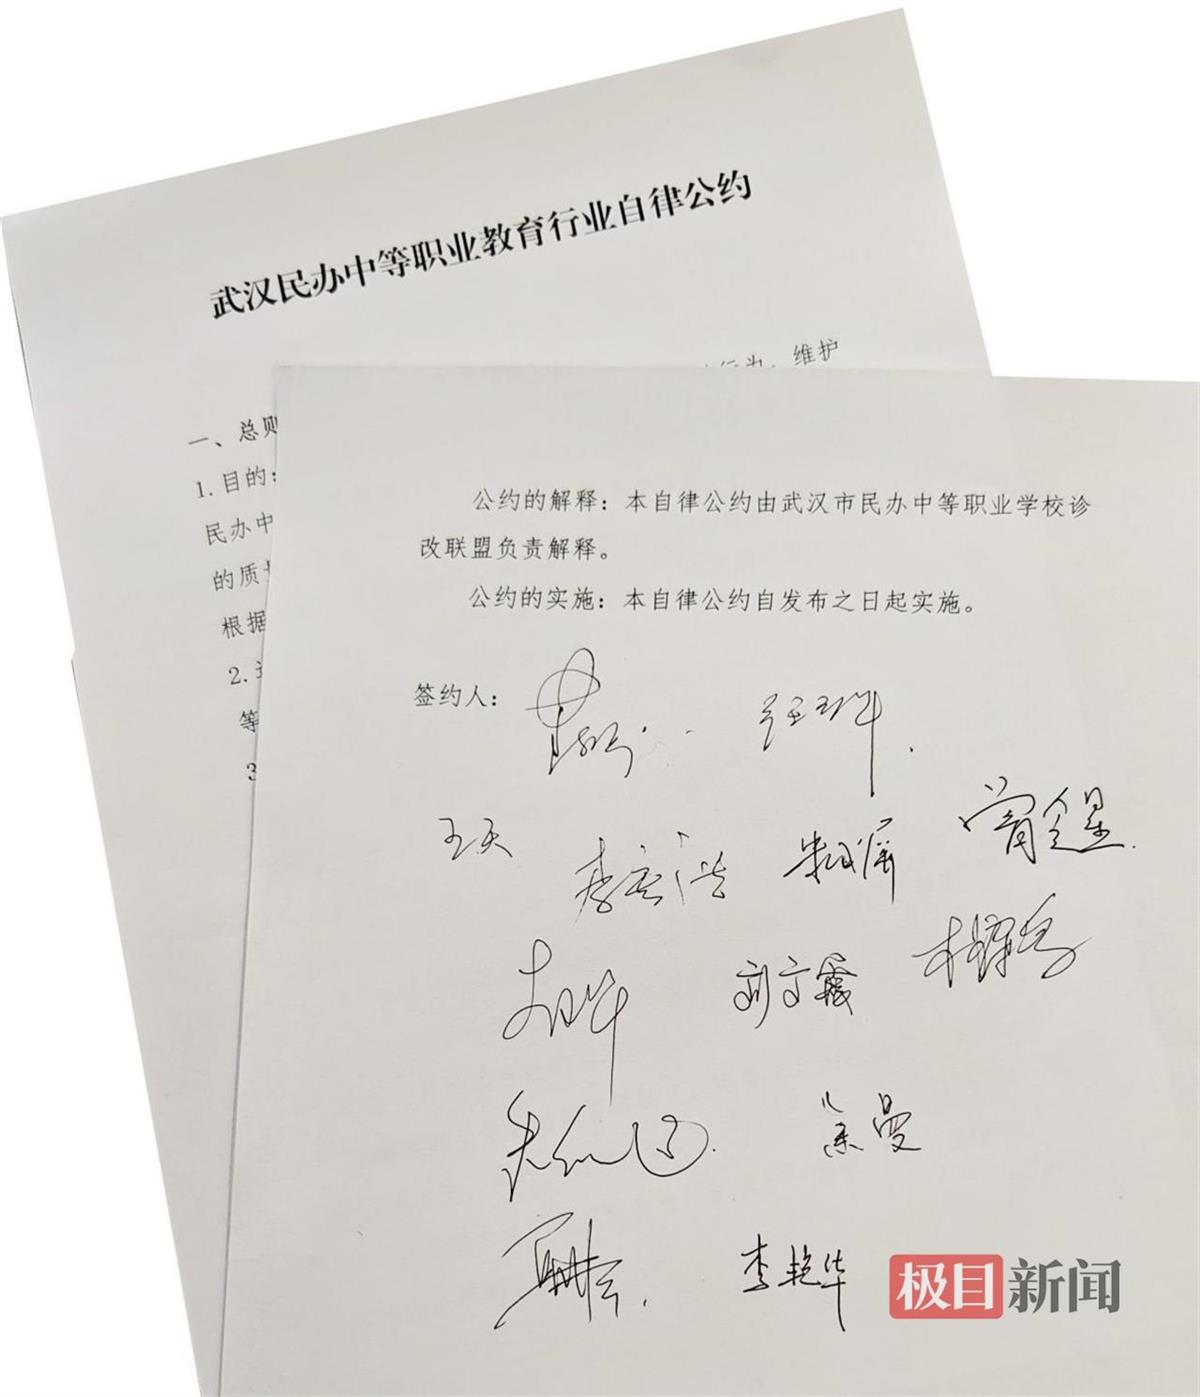 武汉民办中等职业教育行业自律公约
行为，维护
一、总则
1.目的：
民办中
的质
根据
2.
等
3
公约的解释：本自律公约由武汉市民办中等职业学校诊
改联盟负责解释。
公约的实施：本自律公约自发布之日起实施。
签约人：
王天
曾金星
刘文霞
余曼
李艳华
极目新闻